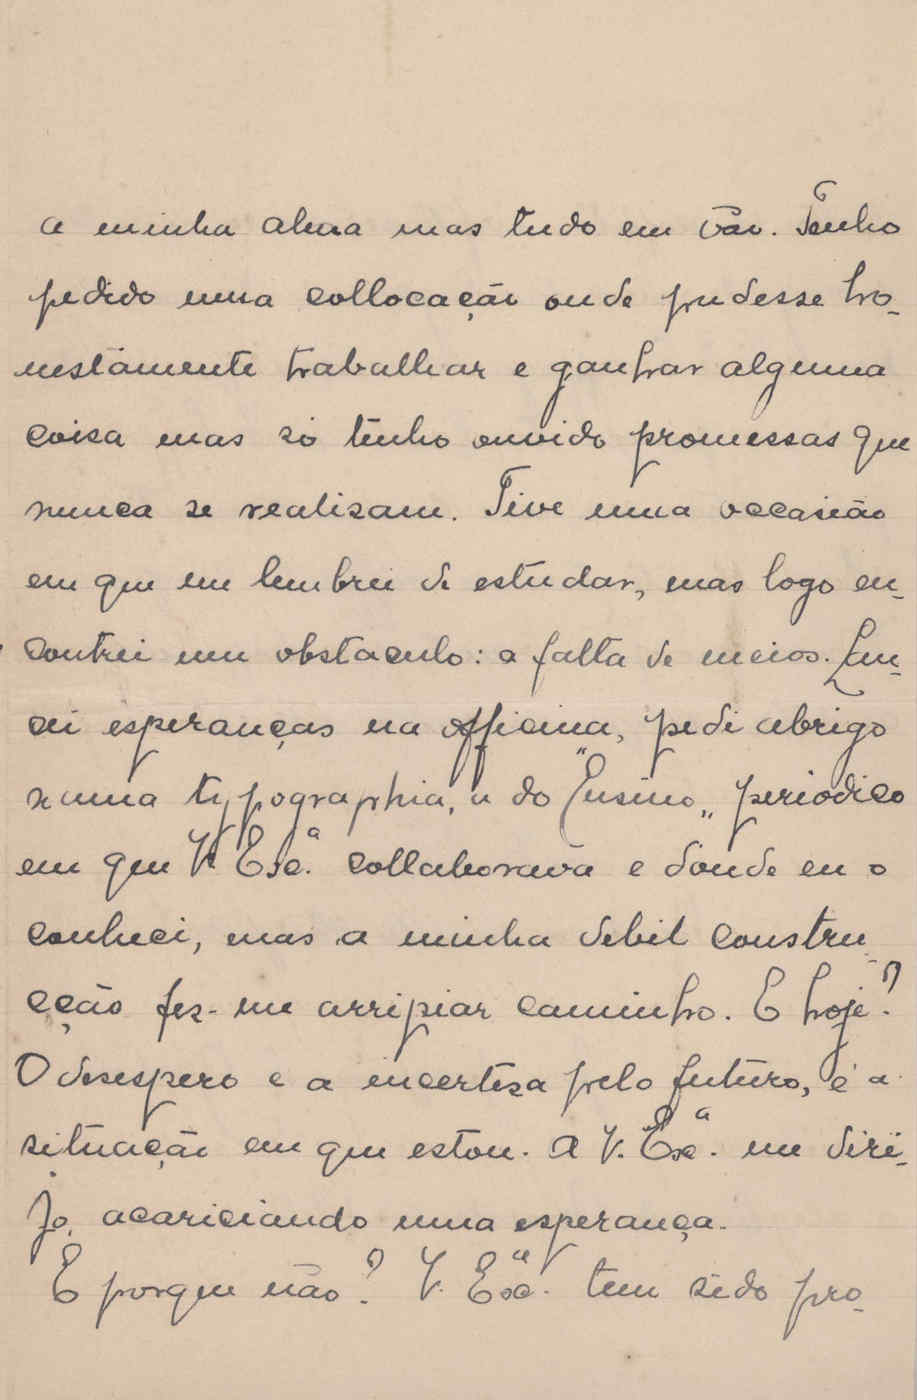 a minha alma mas tudo em vão. Tenho
pedido uma collocação onde pudesse ho-
nestamente trabalhar e ganhar alguma
coisa mas só tenho ouvido promessas que
nunca se realisam. Tive uma occasião
em que me lembrei de estudar, mas logo en-
contrei um obstaculo: a falta de meios. Lan-
cei esperanças na officina, pedi abrigo
numa typographia, a do "Ensino„ periodico
em que V. Exc.ª collaborava e donde eu o
conheci, mas a minha debil constru-
cção fez-me arripiar caminho. E hoje?
O desespero e a incertesa pelo futuro, é a
situação em que estou. A V. Exc.ª me diri-
jo, acariciando uma esperança.
E porque não? V. Exc.ª tem sido pro-